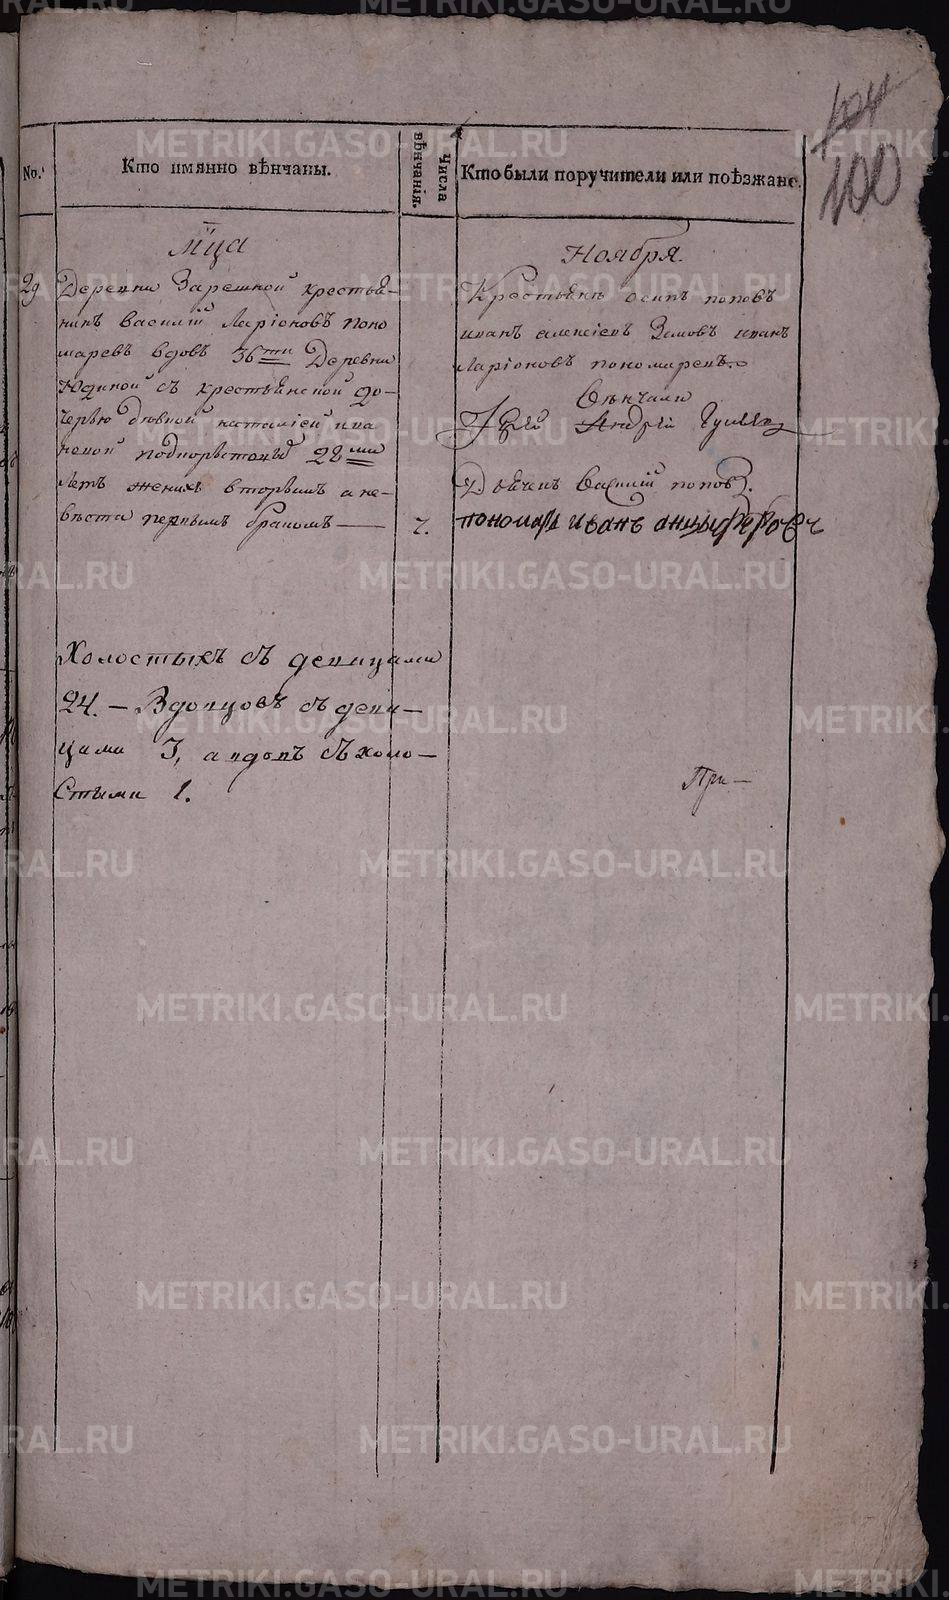 No.
Кто имянно вѣнчаны.
Числа вѣнчанія.
Кто были поручители или поѣзжане.
100
Мца
Ноября.
29
Деревни Зарешной крестья-
нинъ василій Ларіоновъ поно
маревъ вдовъ 36ти Деревни
Юдиной съ крестьянской до-
черью дѣвкой наталіей ива
новой 22ми
Летъ женихъ вторымъ а не-
вѣста первымъ бракомъ —
7.
Крестьянъ осипъ поповъ
иванъ алексіевъ Зыковъ иванъ
Ларіоновъ пономаревъ.
Вѣнчали
Іерей Андрей
Дьячекъ Василій поповъ.
пономарь иванъ
Холостыхъ съ девицами
24. — Вдовцовъ съ деви-
цами 3, а вдовъ съ холо-
стыми 1.
При —
METRIKI.GASO-URAL.RU